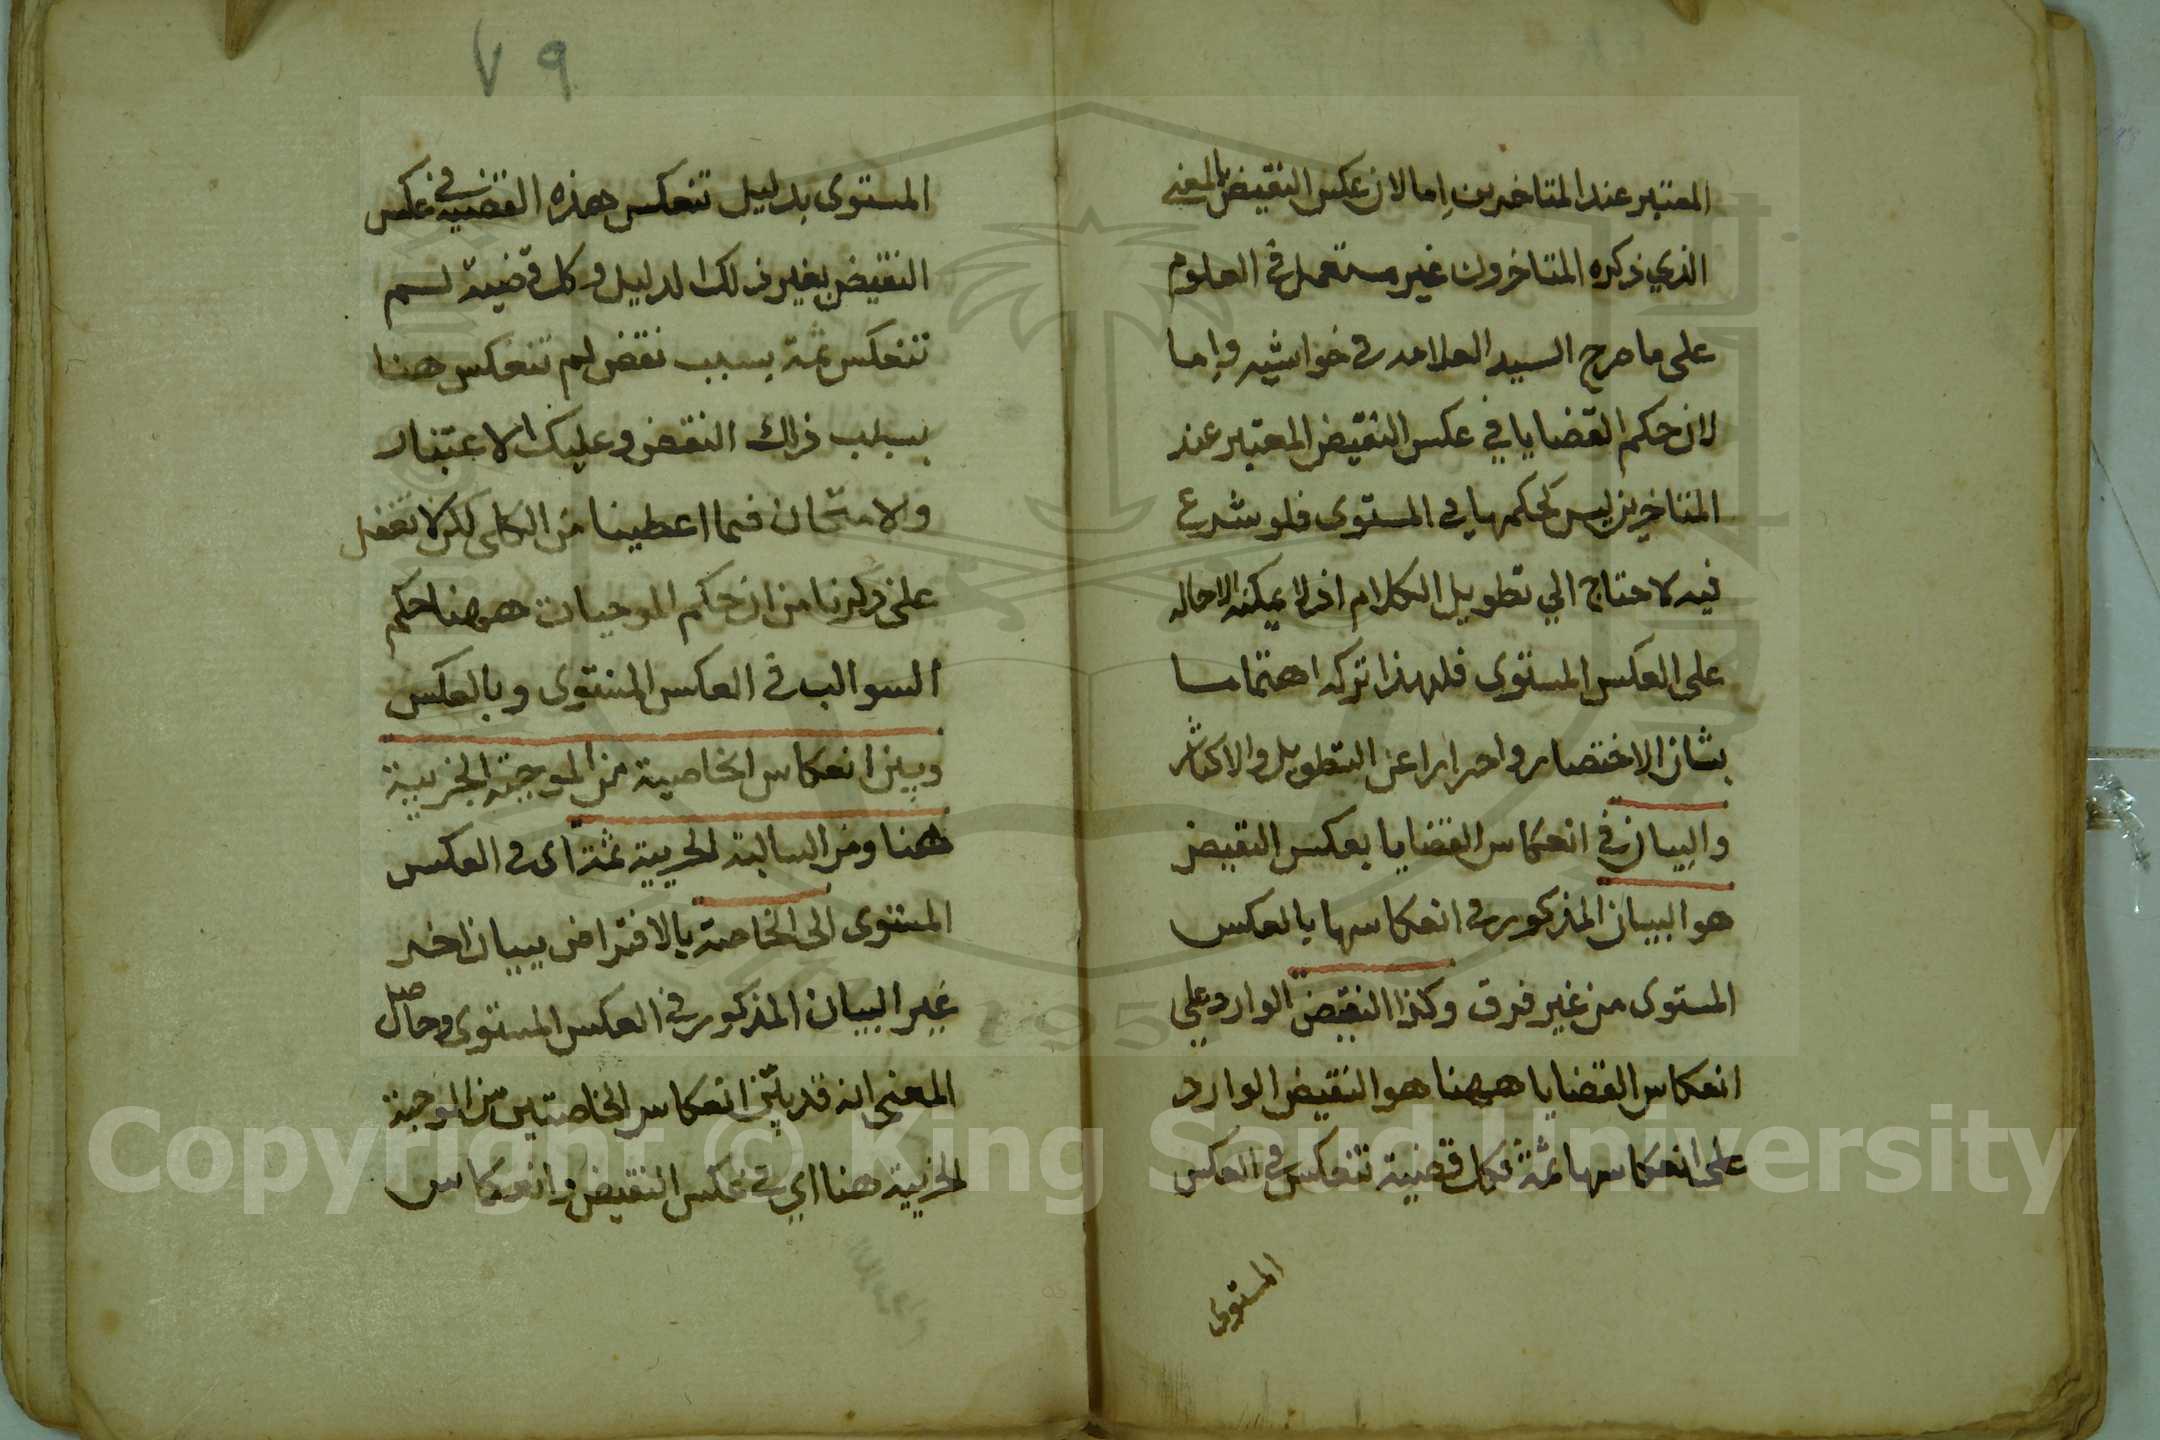 المعتبر عند المتاخرين اما لان عكس النقيض بالمعنى
الذي ذكره المتاخرون غير مستعمل في العلوم
على ما صرح السيد العلامه في حواشيه واما
لان حكم القضايا في عكس النقيض المعتبر عند
المتاخرين ليس كحكمها في المستوى فلو شرع
فيه لاحتاج الي تطويل الكلام اذ لا يمكنه الاحاله
على العكس المستوى فلهذا تركه اهتماما
بشان الاختصار واحترازا عن التطويل والاكثار
والبيان في انعكاس القضايا بعكس النقيض
هو البيان المذكور في انعكاسها بالعكس
المستوى من غير فرق وكذا النقيض الوارد علي
انعكاس القضايا ههنا هو النقيض الوارد
على انعكاسها ثمة فكل قضية تنعكس في العكس
المستوى
٧٩
المستوى بدليل تنعكس هذه القضية في عكس
النقيض بغير ذلك الدليل وكل قضية لم
تنعكس ثمة بسبب نقض لم تنعكس هنا
بسبب ذلك النقض وعليك الاعتبار
والامتحان فيما اعطينا من الكلى لكن لا تغفل
على ذكرنا من ان حكم الموجبات ههنا حكم
السوالب في العكس المستوى وبالعكس
وبين انعكاس الخاصية من الموجبة الجزيية
هنا ومن السالبة الجزيية ثمة اى في العكس
المستوى الى الخاصة بالافتراض ببيان اخر
غير البيان المذكور في العكس المستوى وحاصل
المعنى انه قد بين انعكاس الخاصتين من الموجبة
الجزيية هنا اي في عكس النقيض وانعكاس
Copyright © King Saud University
1957